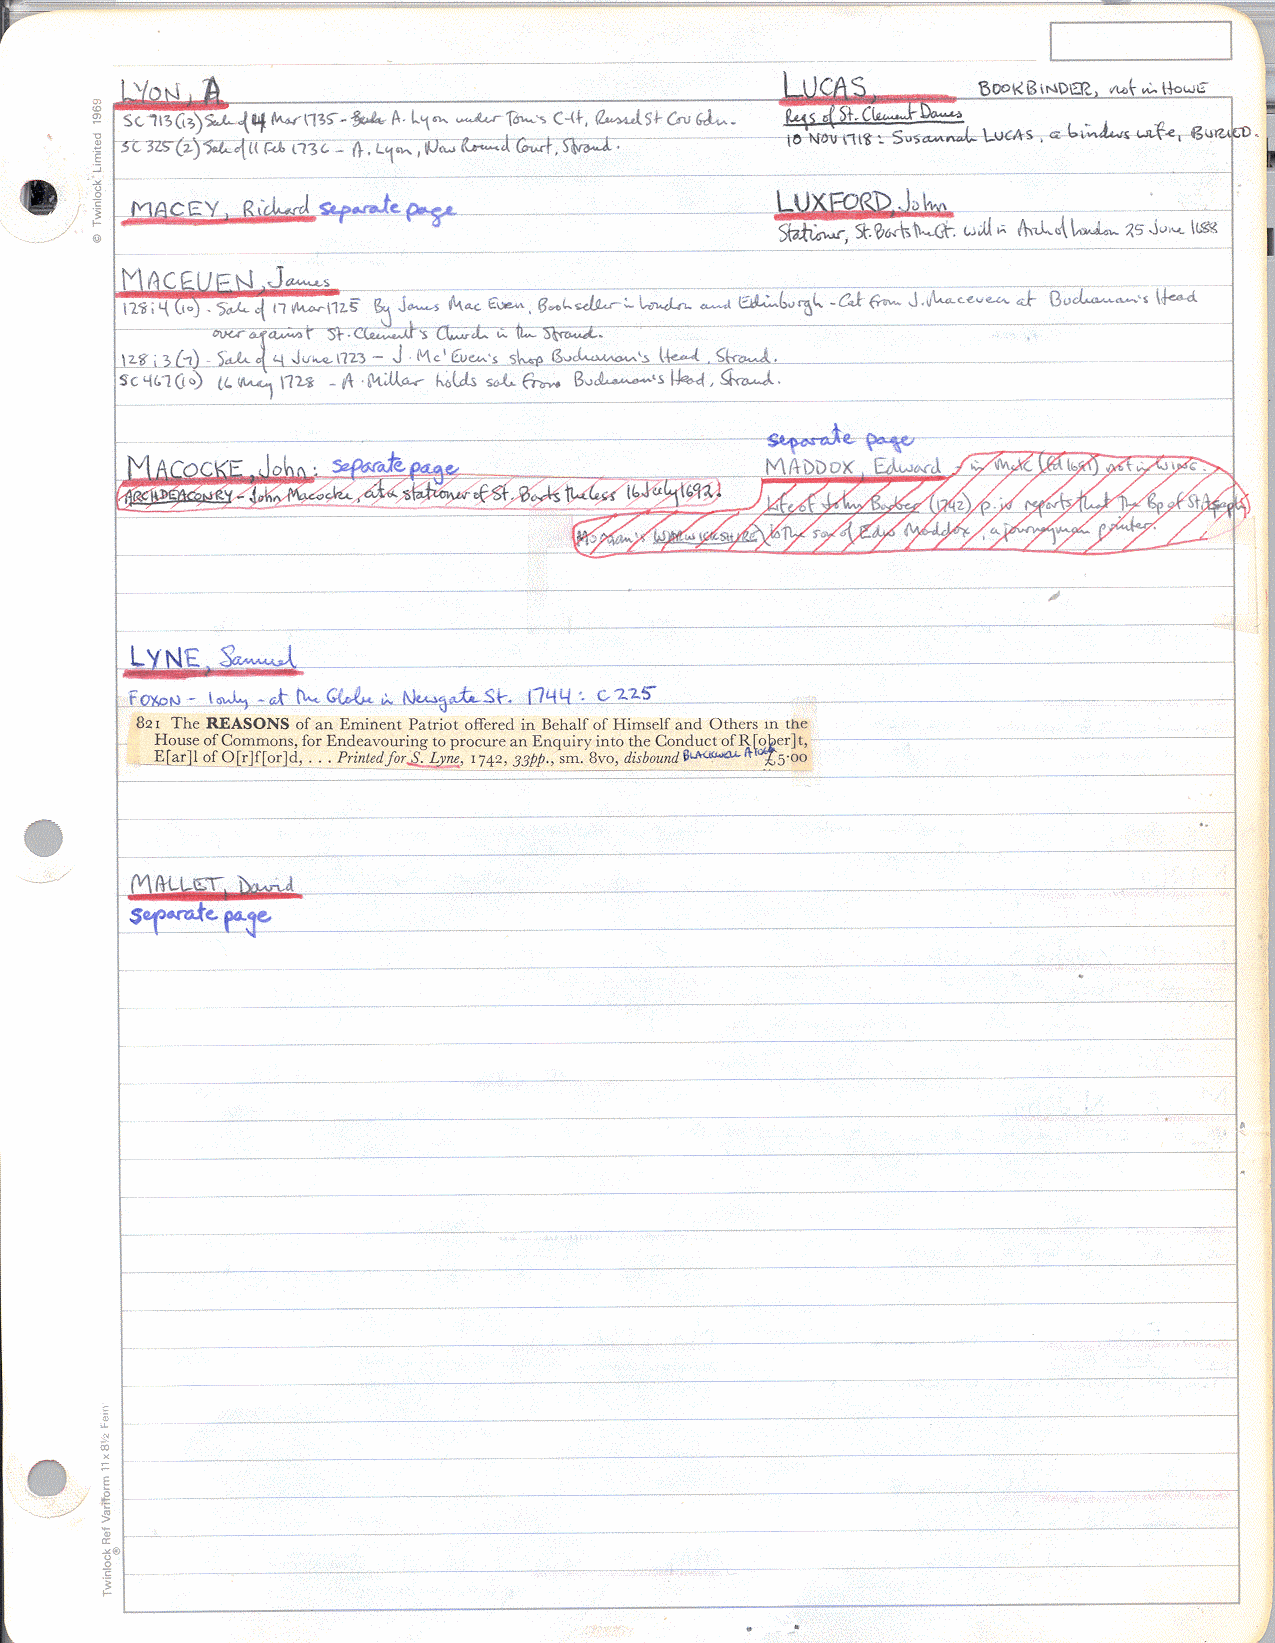 LYON, A
SC 913(13) Sale of 4 Mar 1735 - A. Lyon under Tom's C-H, Russel St Cov Gdn.
SC 325(2) Sale of 11 Feb 1736 - A. Lyon, New Round Court, Strand.
LUCAS, BOOKBINDER, not in HOWE
Regs of St. Clement Danes
10 NOV 1718: Susannah LUCAS, a binders wife, BURIED.
MACEY, Richard separate page
LUXFORD, John
Stationer, St. Barts the Gt. will in Arch of London 25 June 1688
MACEUEN, James
128:4 (10) - Sale of 17 Mar 1725 By James Mac Euen, Bookseller in London and Edinburgh - Cat from J. Maceuen at Buchanan's Head
over against St. Clement's Church in the Strand.
128:3 (7) - Sale of 4 June 1723 - J. Mc'Euen's shop Buchanan's Head, Strand.
SC 467(10) 16 May 1728 - A. Millar holds sale from Buchanan's Head, Strand.
MACOCKE, John: separate page
ARCHDEACONRY - John Macocke, cit & stationer of St. Barts the less 16 July 1692.
separate page
MADDOX, Edward - in McK (Ed 1691) not in WING.
Life of John Barber (1742) p. iv reports that the Bp of St Asaph
is the son of Edw Maddox, a journeyman printer.
LYNE, Samuel
FOXON - 1 only - at the Globe in Newgate St. 1744: C225
821 The REASONS of an Eminent Patriot offered in Behalf of Himself and Others in the
House of Commons, for Endeavouring to procure an Enquiry into the Conduct of R[ober]t,
E[ar]l of O[r]f[or]d, . . . Printed for S. Lyne, 1742, 33pp., sm. 8vo, disbound BLACKWELL £5·00
MALLET, David
separate page
© Twinlock Limited 1969
Twinlock® Ref Variform 11 x 8½ Feint